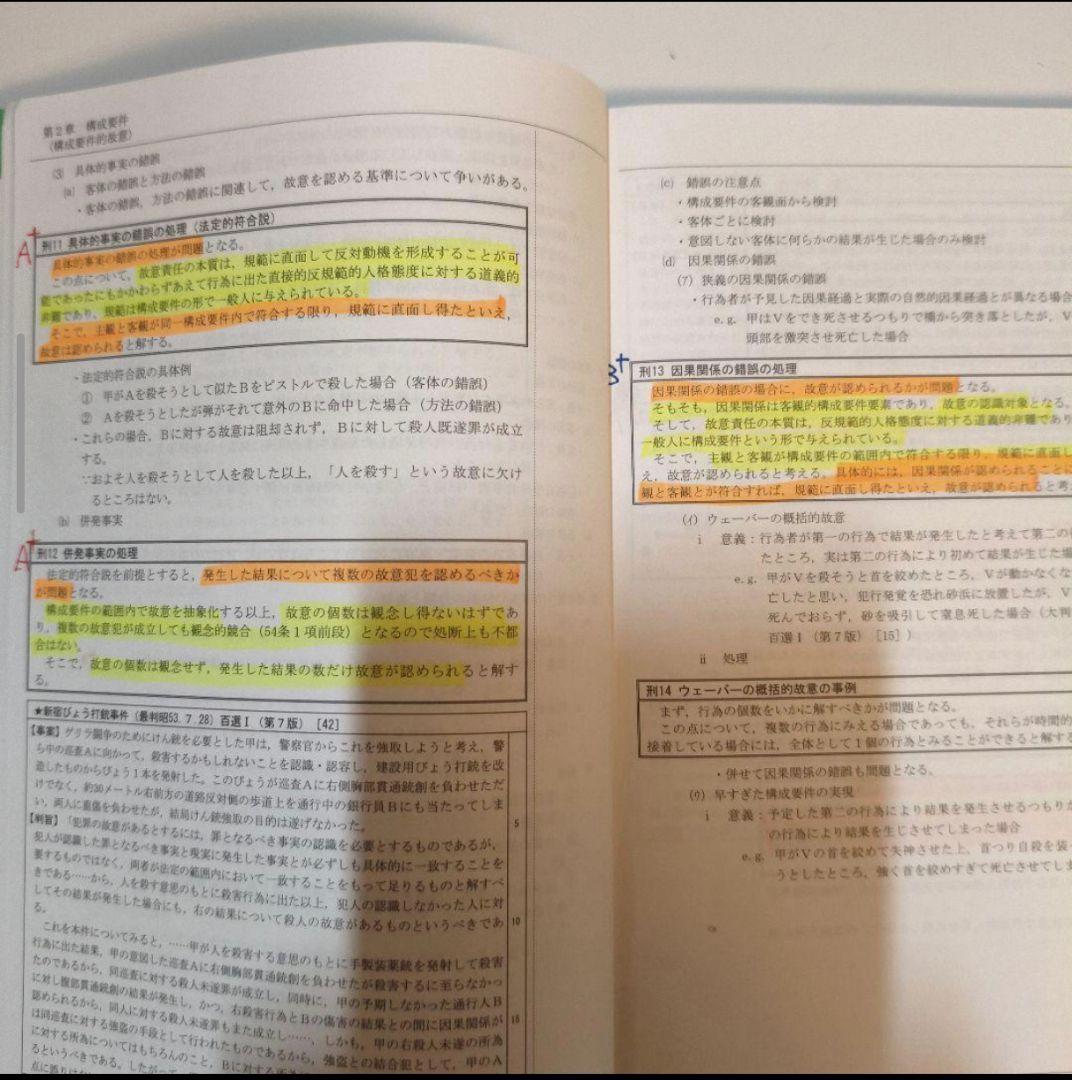 第2章 構成要件
(構成要件的故意)
③ 具体的事実の錯誤
(a) 客体の錯誤と方法の錯誤
・客体の錯誤，方法の錯誤に関連して，故意を認める基準について争いがある。
A+
刑11 具体的事実の錯誤の処理（法定的符合説）
具体的事実の錯誤の処理が問題となる。
この点について，故意責任の本質は，規範に直面して反対動機を形成することが可
能であったにもかかわらずあえて行為に出た直接的反規範的人格態度に対する道義的
非難であり，規範は構成要件の形で一般人に与えられている。
そこで，主観と客観が同一構成要件内で符合する限り，規範に直面し得たといえ，
故意は認められると解する。
・法定的符合説の具体例
① 甲がAを殺そうとして似たBをピストルで殺した場合（客体の錯誤）
② Aを殺そうとしたが弾がそれて意外のBに命中した場合（方法の錯誤）
・これらの場合，Bに対する故意は阻却されず，Bに対して殺人既遂罪が成立
する。
∵およそ人を殺そうとして人を殺した以上，「人を殺す」という故意に欠け
るところはない。
(b) 併発事実
A+
刑12 併発事実の処理
法定的符合説を前提とすると，発生した結果について複数の故意犯を認めるべきか
が問題となる。
構成要件の範囲内で故意を抽象化する以上，故意の個数は観念し得ないはずであ
り，複数の故意犯が成立しても観念的競合（54条1項前段）となるので処断上も不都
合はない。
そこで，故意の個数は観念せず，発生した結果の数だけ故意が認められると解す
る。
★新宿びょう打銃事件（最判昭53．7．28）百選Ⅰ（第7版）［42］
【事案】ゲリラ闘争のためにけん銃を必要とした甲は，警察官からこれを強取しようと考え，警
ら中の巡査Aに向かって，殺害するかもしれないことを認識・認容し，建設用びょう打銃を改
造したものからびょう1本を発射した。このびょうが巡査Aに右側胸部貫通銃創を負わせただ
けでなく，約30メートル右前方の道路反対側の歩道上を通行中の銀行員Bにも当たってしま
い，両人に重傷を負わせたが，結局けん銃強取の目的は遂げなかった。
5
【判旨】「犯罪の故意があるとするには，罪となるべき事実の認識を必要とするものであるが，
犯人が認識した罪となるべき事実と現実に発生した事実とが必ずしも具体的に一致することを
要するものではなく，両者が法定の範囲内において一致することをもって足りるものと解すべ
きである……から，人を殺す意思のもとに殺害行為に出た以上，犯人の認識しなかった人に対
してその結果が発生した場合にも，右の結果について殺人の故意があるものというべきであ
10
る。
これを本件についてみると，……甲が人を殺害する意思のもとに手製装薬銃を発射して殺害
行為に出た結果，甲の意図した巡査Aに右側胸部貫通銃創を負わせたが殺害するに至らなかっ
たのであるから，同巡査に対する殺人未遂罪が成立し，同時に，甲の予期しなかった通行人B
に対し腹部貫通銃創の結果が発生し，かつ，右殺害行為とBの傷害の結果との間に因果関係が
認められるから，同人に対する殺人未遂罪もまた成立し……，しかも，甲の右殺人未遂の所為
15
は同巡査に対する強盗の手段として行われたものであるから，強盗との結合犯として，甲のA
に対する所為についてはもちろんのこと，Bに対する所為
るというべきである。したがって
点に誤り
(c) 錯誤の注意点
・構成要件の客観面から検討
・客体ごとに検討
・意図しない客体に何らかの結果が生じた場合のみ検討
(d) 因果関係の錯誤
(ｱ) 狭義の因果関係の錯誤
・行為者が予見した因果経過と実際の自然的因果経過とが異なる場合
e.g. 甲はVをでき死させるつもりで橋から突き落としたが，V
頭部を激突させ死亡した場合
B+
刑13 因果関係の錯誤の処理
因果関係の錯誤の場合に，故意が認められるかが問題となる。
そもそも，因果関係は客観的構成要件要素であり，故意の認識対象となる。
そして，故意責任の本質は，反規範的人格態度に対する道義的非難であり
一般人に構成要件という形で与えられている。
そこで，主観と客観が構成要件の範囲内で符合する限り，規範に直面し
え，故意が認められると考える。具体的には，因果関係が認められることに
観と客観とが符合すれば，規範に直面し得たといえ，故意が認められると考
(ｲ) ウェーバーの概括的故意
ⅰ 意義：行為者が第一の行為で結果が発生したと考えて第二の
たところ，実は第二の行為により初めて結果が生じた場
e.g. 甲がVを殺そうと首を絞めたところ，Vが動かなくな
亡したと思い，犯行発覚を恐れ砂浜に放置したが，V
死んでおらず，砂を吸引して窒息死した場合（大判
百選Ⅰ（第7版）［15］）
ⅱ 処理
刑14 ウェーバーの概括的故意の事例
まず，行為の個数をいかに解すべきかが問題となる。
この点について，複数の行為にみえる場合であっても，それらが時間的
接着している場合には，全体として1個の行為とみることができると解する
・併せて因果関係の錯誤も問題となる。
(ｳ) 早すぎた構成要件の実現
ⅰ 意義：予定した第二の行為により結果を発生させるつもりが
の行為により結果を生じさせてしまった場合
e.g. 甲がVの首を絞めて失神させた上，首つり自殺を装
うとしたところ，強く首を絞めすぎて死亡させてしま